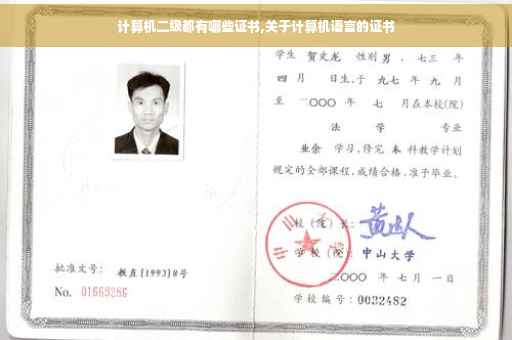 计算机二级都有哪些证书,关于计算机语言的证书
学生 贺文龙 性别 男 、七三 年
四 月 日生,于 九七 年 九 月
至 二〇〇〇 年 七 月在本校(院)
法 学 专业
业余 学习,修完 本 科教学计划
规定的全部课程,成绩合格,准予毕业。
校(院)长:
学校(院): 中山大学
二〇〇〇 年 七 月 一 日
学校编号: 0032482
批准文号: 教直[1993]8号
No. 01669286